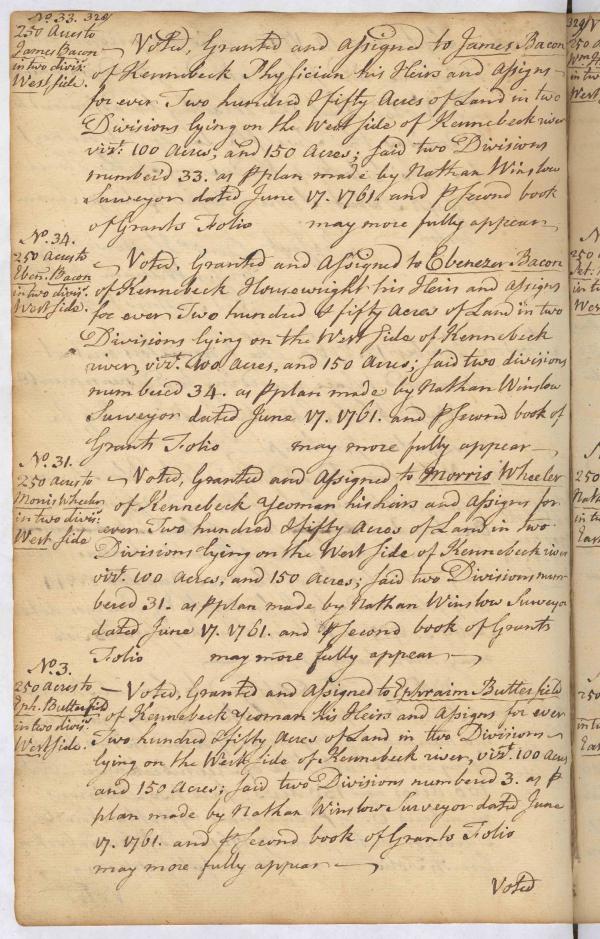 No. 33. 328/
250 Acres to
James Bacon
in two divis:
West side.
Voted, Granted and Assigned to James Bacon
of Kennebeck Physician his Heirs and Assigns
for ever Two hundred & fifty Acres of Land in two
Divisions lying on the West side of Kennebeck river
vizt. 100 Acres, and 150 Acres; said two Divisions
number'd 33. as ⅌ plan made by Nathan Winslow
Surveyor dated June 17. 1761. and ⅌ Second book
of Grants Folio may more fully appear
No. 34.
250 Acres to
Eben. Bacon
in two divis:
West side.
Voted, Granted and Assigned to Ebenezer Bacon
of Kennebeck Housewright his Heirs and Assigns
for ever Two hundred & fifty Acres of Land in two
Divisions lying on the West side of Kennebeck
river, vizt. 100 Acres, and 150 Acres; said two divisions
numbered 34. as ⅌ plan made by Nathan Winslow
Surveyor dated June 17. 1761. and ⅌ Second book of
Grants Folio may more fully appear
No. 31.
250 Acres to
Morris Wheeler
in two divis:
West side
Voted, Granted and Assigned to Morris Wheeler
of Kennebeck Yeoman his heirs and Assigns for
ever Two hundred & fifty Acres of Land in two
Divisions lying on the West side of Kennebeck river
vizt. 100 Acres, and 150 Acres; said two Divisions num-
bered 31. as ⅌ plan made by Nathan Winslow Surveyor
dated June 17. 1761. and ⅌ Second book of Grants
Folio may more fully appear
No. 3.
250 Acres to
Eph. Butterfield
in two divis:
West side.
Voted, Granted and Assigned to Ephraim Butterfield
of Kennebeck Yeoman his Heirs and Assigns for ever
Two hundred & fifty Acres of Land in two Divisions
lying on the West side of Kennebeck river, vizt. 100 Acres
and 150 Acres; said two Divisions numbered 3. as ⅌
plan made by Nathan Winslow Surveyor dated June
17. 1761. and ⅌ Second book of Grants Folio
may more fully appear
Voted